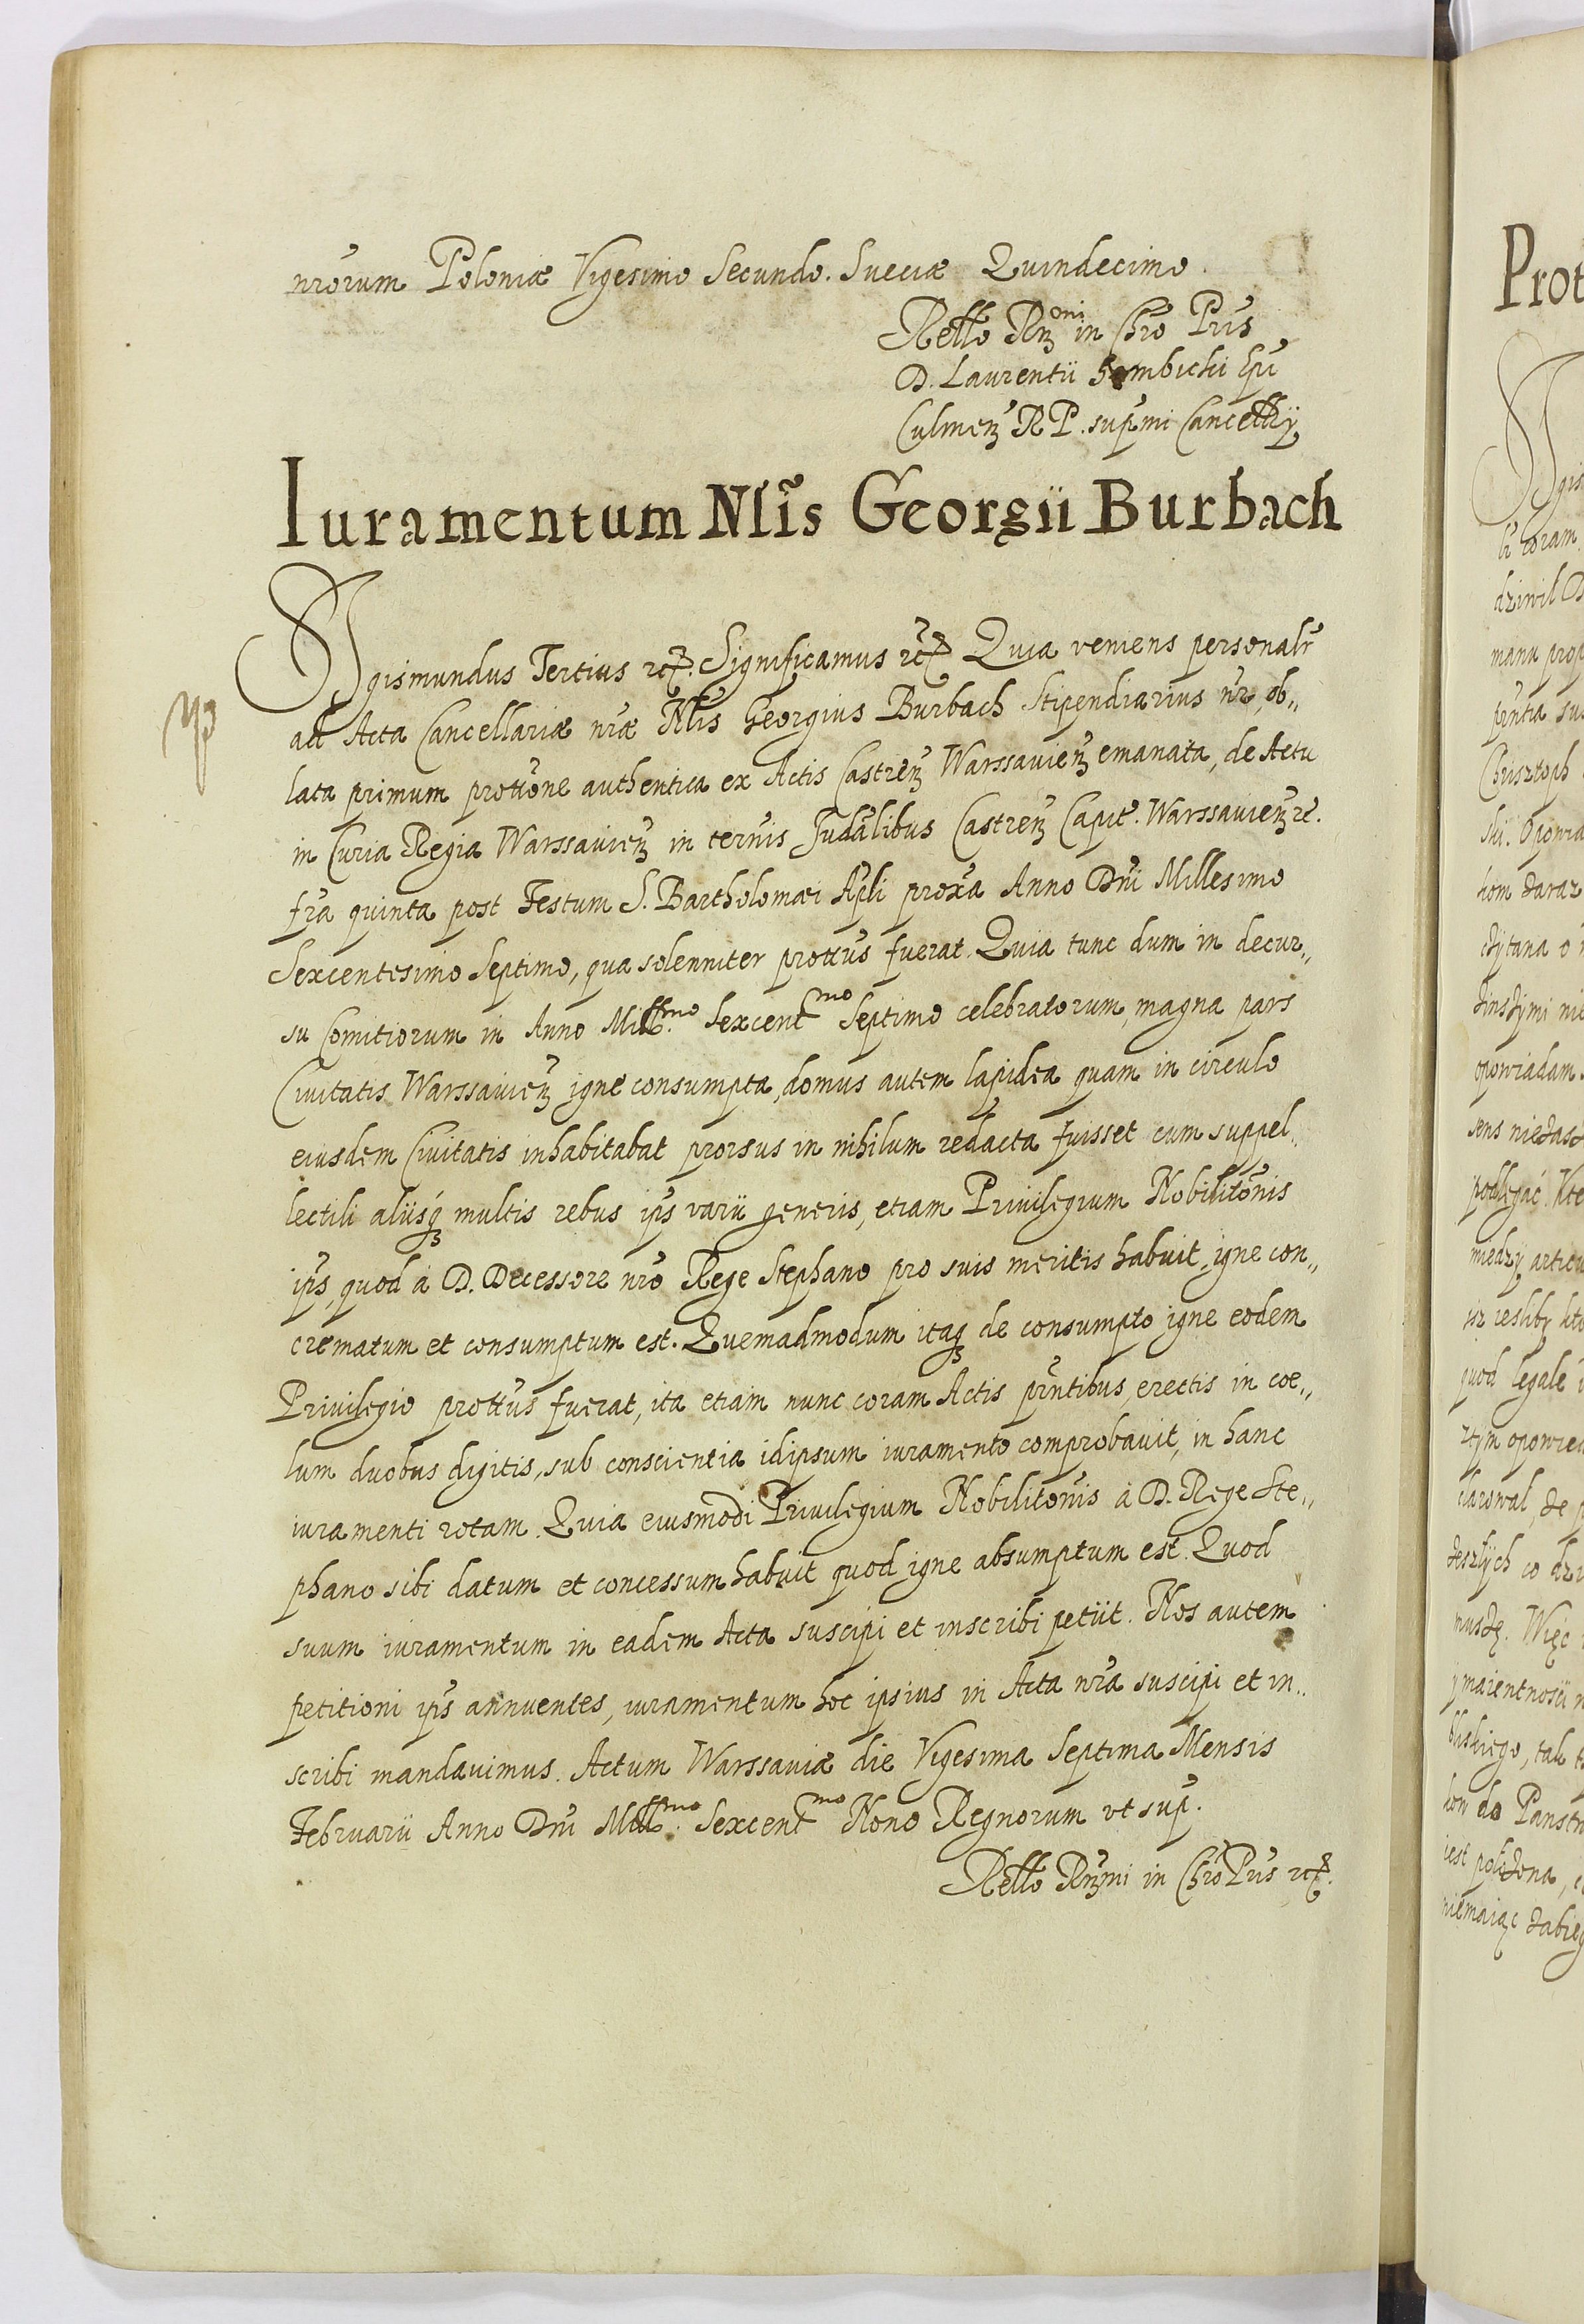 nrorum Poloniæ Vigesimo Secundo. Sueciæ Quindecimo.
Rello Rmi in Chro Pris
D. Laurentii Gembicki Epi
Culmen R P. supmi Cancellrii
Iuramentum Nlis Georgii Burbach
Sigismundus Tertius etc. Significamus etc. Quia veniens personalr
ad Acta Cancellariæ nræ Nlis Georgius Burbach Stipendiarius nr, ob„
lata primum prottone authentica ex Actis Castren Warssavien emanata, de Actu
in Curia Regia Warssavien in ternis Judalibus Castren Capit. Warssavien etc.
fra quinta post Festum S. Bartholomæi Apli proxa Anno Dni Millesimo
Sexcentesimo Septimo, qua solenniter prottus fuerat. Quia tunc dum in decur„
su Comitiorum in Anno Mill.mo Sexcentmo Septimo celebratorum, magna pars
Civitatis Warssavien igne consumpta, domus autem lapidea quam in circulo
eiusdem Civitatis inhabitabat prorsus in nihilum redacta fuisset cum suppel„
lectili aliisq multis rebus ips varii generis, etiam Privilegium Nobilitonis
ips, quod à D. Decessore nro Rege Stephano pro suis meritis habuit, igne con„
crematum et consumptum est. Quemadmodum itaq de consumpto igne eodem
Privilegio prottus fuerat, ita etiam nunc coram Actis prntibus, erectis in coe„
lum duobus digitis, sub conscientia idipsum iuramento comprobavit, in hanc
iuramenti rotam. Quia eiusmodi Privilegium Nobilitonis à D. Rege Ste„
phano sibi datum et concessum habuit quod igne absumptum est. Quod
suum iuramentum in eadem Acta suscipi et inscribi petiit. Nos autem
petitioni ips annuentes, iuramentum hoc ipsius in Acta nra suscipi et in„
scribi mandavimus. Actum Warssaviæ die Vigesima Septima Mensis
Februarii Anno Dni Mill.mo Sexcentmo Nono Regnorum vt sup.
Rello Rmi in Chro Pris etc.
Prot